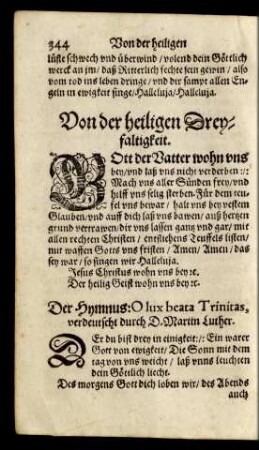 344 Von der heiligen
lüste schwech vnd überwind / volend dein Göttlich
werck an jm / daß Ritterlich fechte sein gewin / also
vom tod ins leben dringe / vnd der sampt allen En-
geln in ewigkeit singe / Halleluja / Halleluja.
Von der heiligen Drey-
faltigkeit.
GOtt der Vatter wohn vns
bey / vnd laß vns nicht verderben :/:
Mach vns aller Sünden frey / vnd
hilff vns selig sterben. Für dem teuf-
fel vns bewar / halt vns bey vestem
Glauben / vnd auff dich laß vns bawen / auß hertzen
grund vertrawen / dir vns lassen gantz vnd gar / mit
allen rechten Christen / entfliehens Teuffels listen /
mit waffen Gotts vns fristen / Amen / Amen / das
sey war / so singen wir Halleluja.
Jesus Christus wohn vns bey ꝛc.
Der heilig Geist wohn vns bey ꝛc.
Der Hymnus: O lux beata Trinitas,
verdeutscht durch D. Martin Luther.
DEr du bist drey in einigkeit :/: Ein warer
Gott von ewigkeit / Die Sonn mit dem
tag von vns weicht / laß vnns leuchten
dein Göttlich liecht.
Des morgens Gott dich loben wir / des Abends
auch